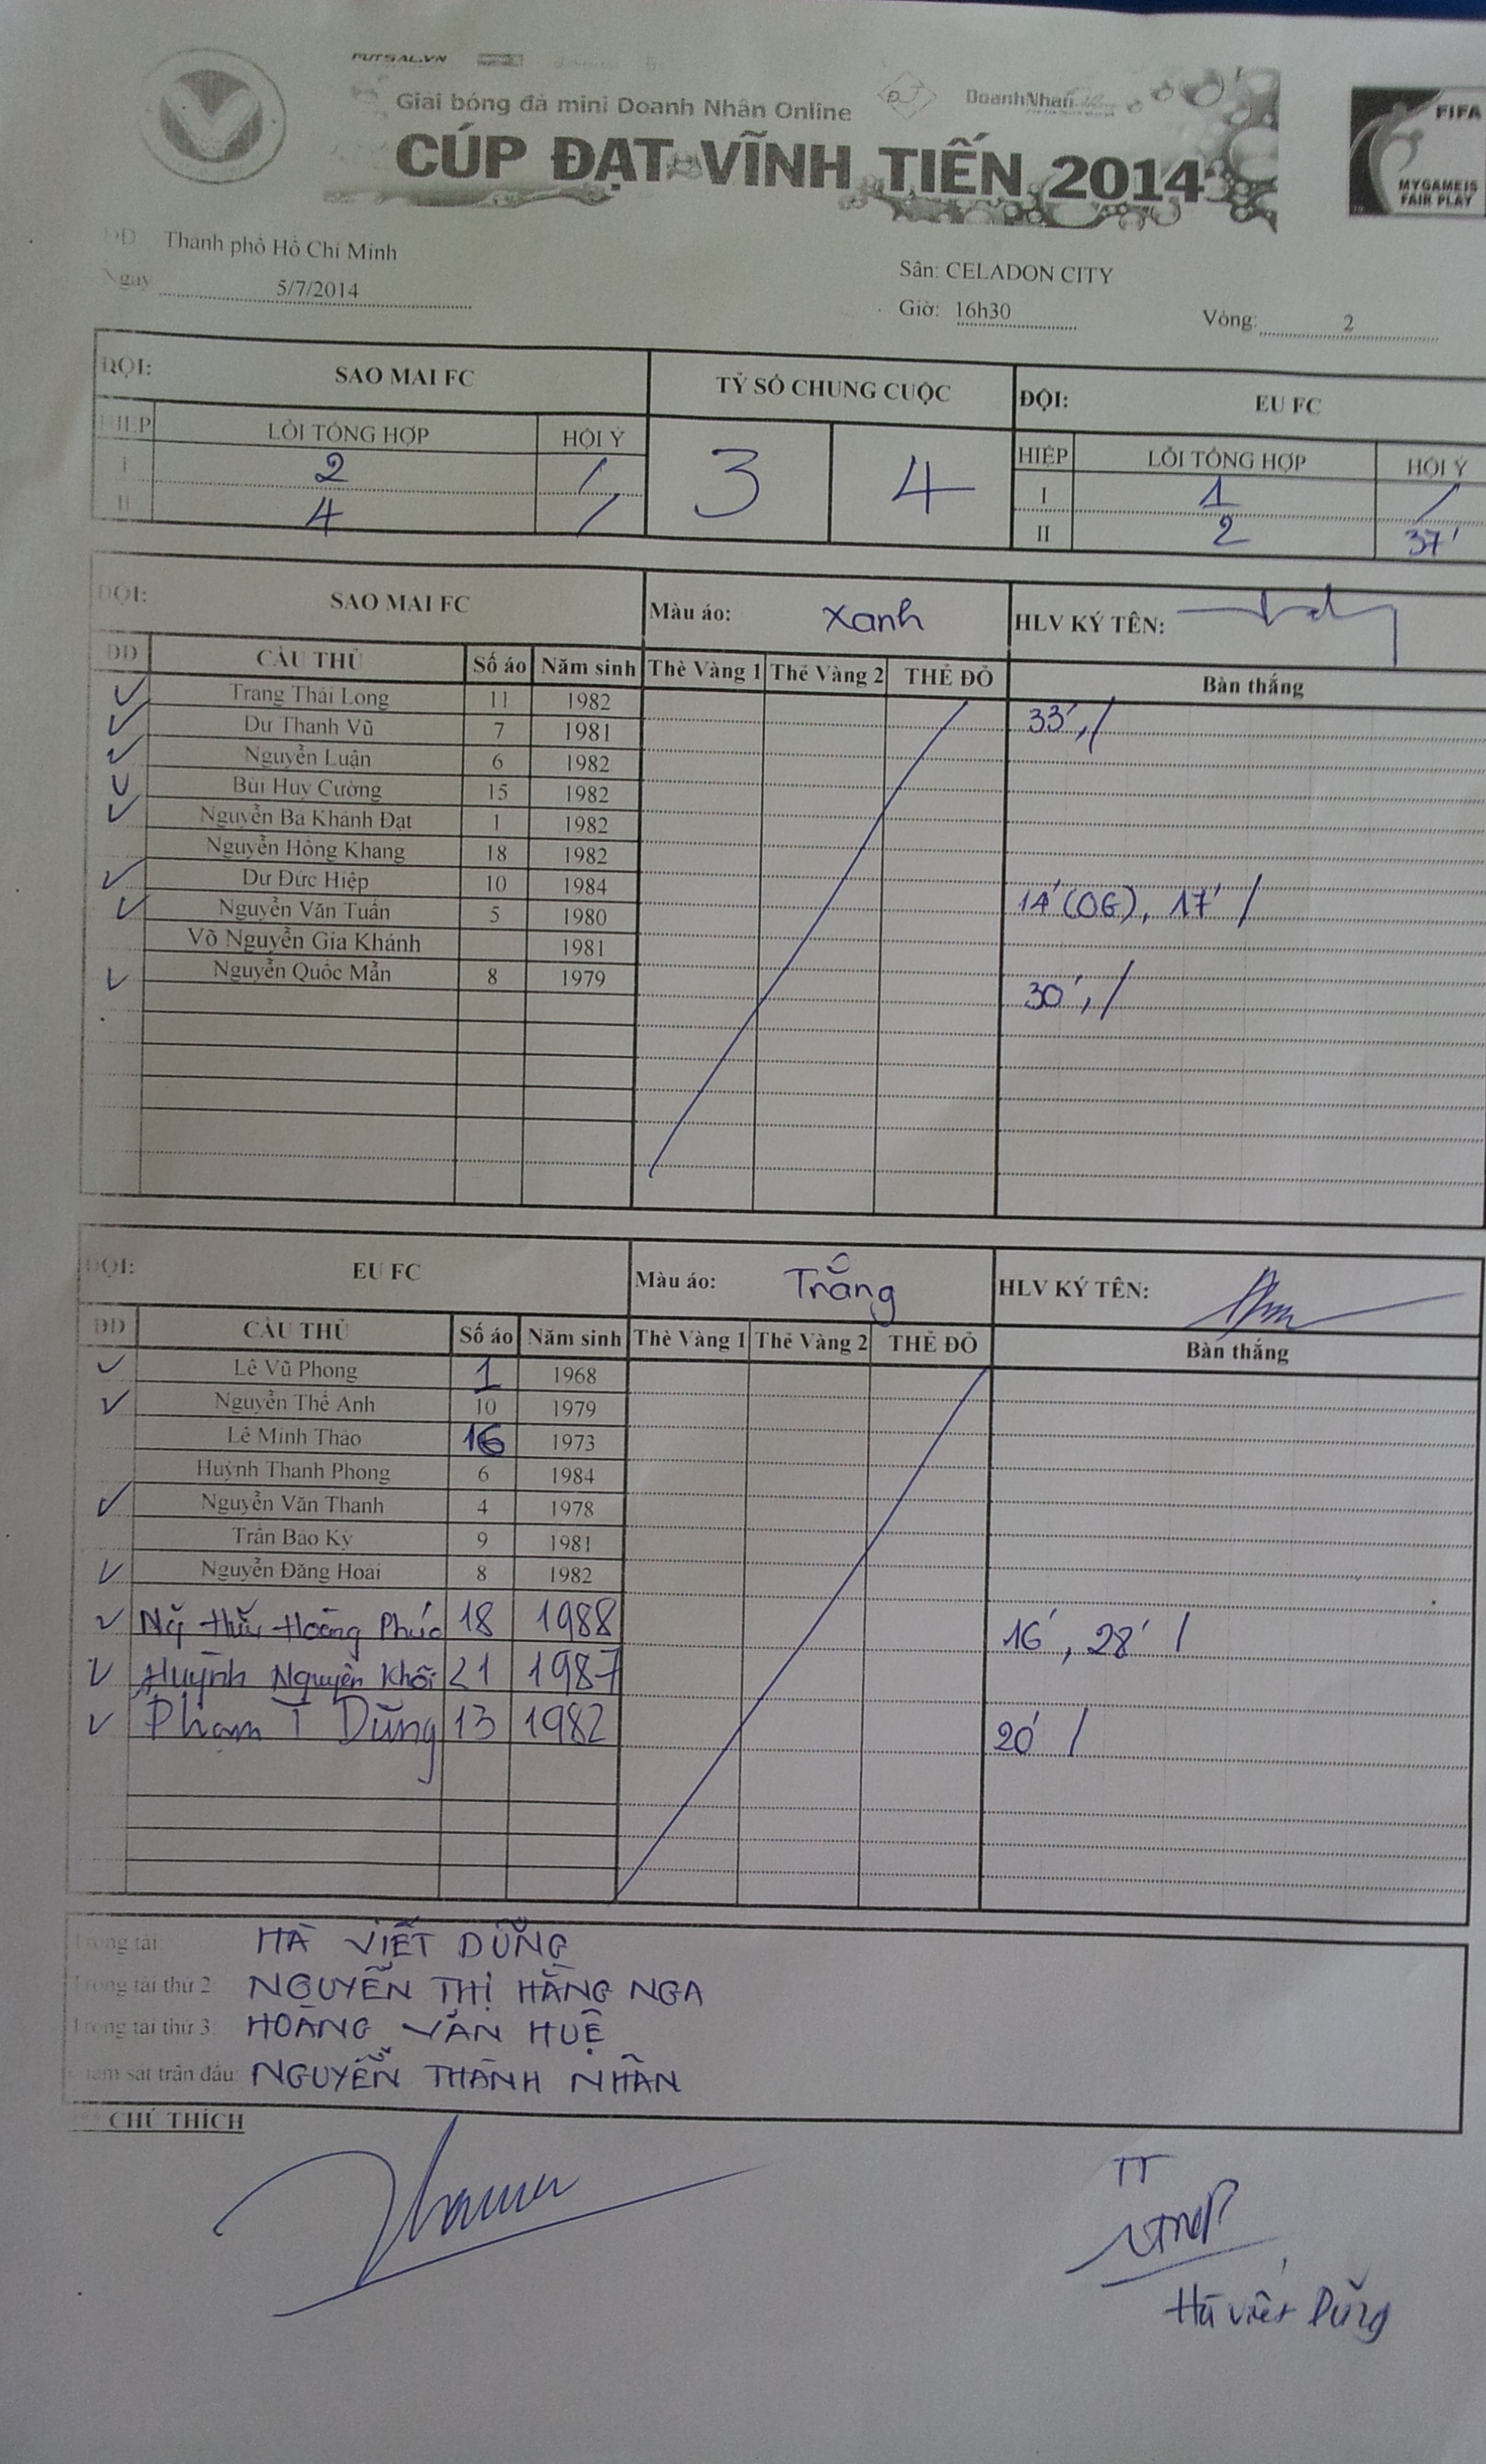 FUTSAL.VN
Giải bóng đá mini Doanh Nhân Online DoanhNhan
CÚP ĐẠT VĨNH TIẾN 2014
FIFA
MY GAME IS
FAIR PLAY
ĐĐ Thành phố Hồ Chí Minh
Sân: CELADON CITY
Ngày 5/7/2014
Giờ: 16h30 Vòng: 2
ĐỘI: SAO MAI FC TỶ SỐ CHUNG CUỘC ĐỘI: EU FC
HIỆP LỖI TỔNG HỢP HỘI Ý 3 4 HIỆP LỖI TỔNG HỢP HỘI Ý
I 2 / I 1 /
II 4 / II 2 37'
ĐỘI: SAO MAI FC Màu áo: Xanh HLV KÝ TÊN:
DD CẦU THỦ Số áo Năm sinh Thẻ Vàng 1 Thẻ Vàng 2 THẺ ĐỎ Bàn thắng
Trang Thái Long 11 1982 33', /
Dư Thanh Vũ 7 1981
Nguyễn Luận 6 1982
Bùi Huy Cường 15 1982
Nguyễn Bá Khánh Đạt 1 1982
Nguyễn Hồng Khang 18 1982
Dư Đức Hiệp 10 1984 14' (OG), 17' /
Nguyễn Văn Tuấn 5 1980
Võ Nguyễn Gia Khánh 1981
Nguyễn Quốc Mẫn 8 1979 30', /
ĐỘI: EU FC Màu áo: Trắng HLV KÝ TÊN:
DD CẦU THỦ Số áo Năm sinh Thẻ Vàng 1 Thẻ Vàng 2 THẺ ĐỎ Bàn thắng
Lê Vũ Phong 1 1968
Nguyễn Thế Anh 10 1979
Lê Minh Thảo 16 1973
Huỳnh Thanh Phong 6 1984
Nguyễn Văn Thanh 4 1978
Trần Bảo Kỳ 9 1981
Nguyễn Đăng Hoài 8 1982
Ng Hữu Hoàng Phúc 18 1988 16', 28' /
Huỳnh Nguyên Khôi 21 1987
Phạm T Dũng 13 1982 20' /
Trọng tài HÀ VIẾT DŨNG
Trọng tài thứ 2 NGUYỄN THỊ HẰNG NGA
Trọng tài thứ 3: HOÀNG VĂN HUỆ
Giám sát trận đấu: NGUYỄN THÀNH NHÂN
CHÚ THÍCH
TT
Hà Viết Dũng